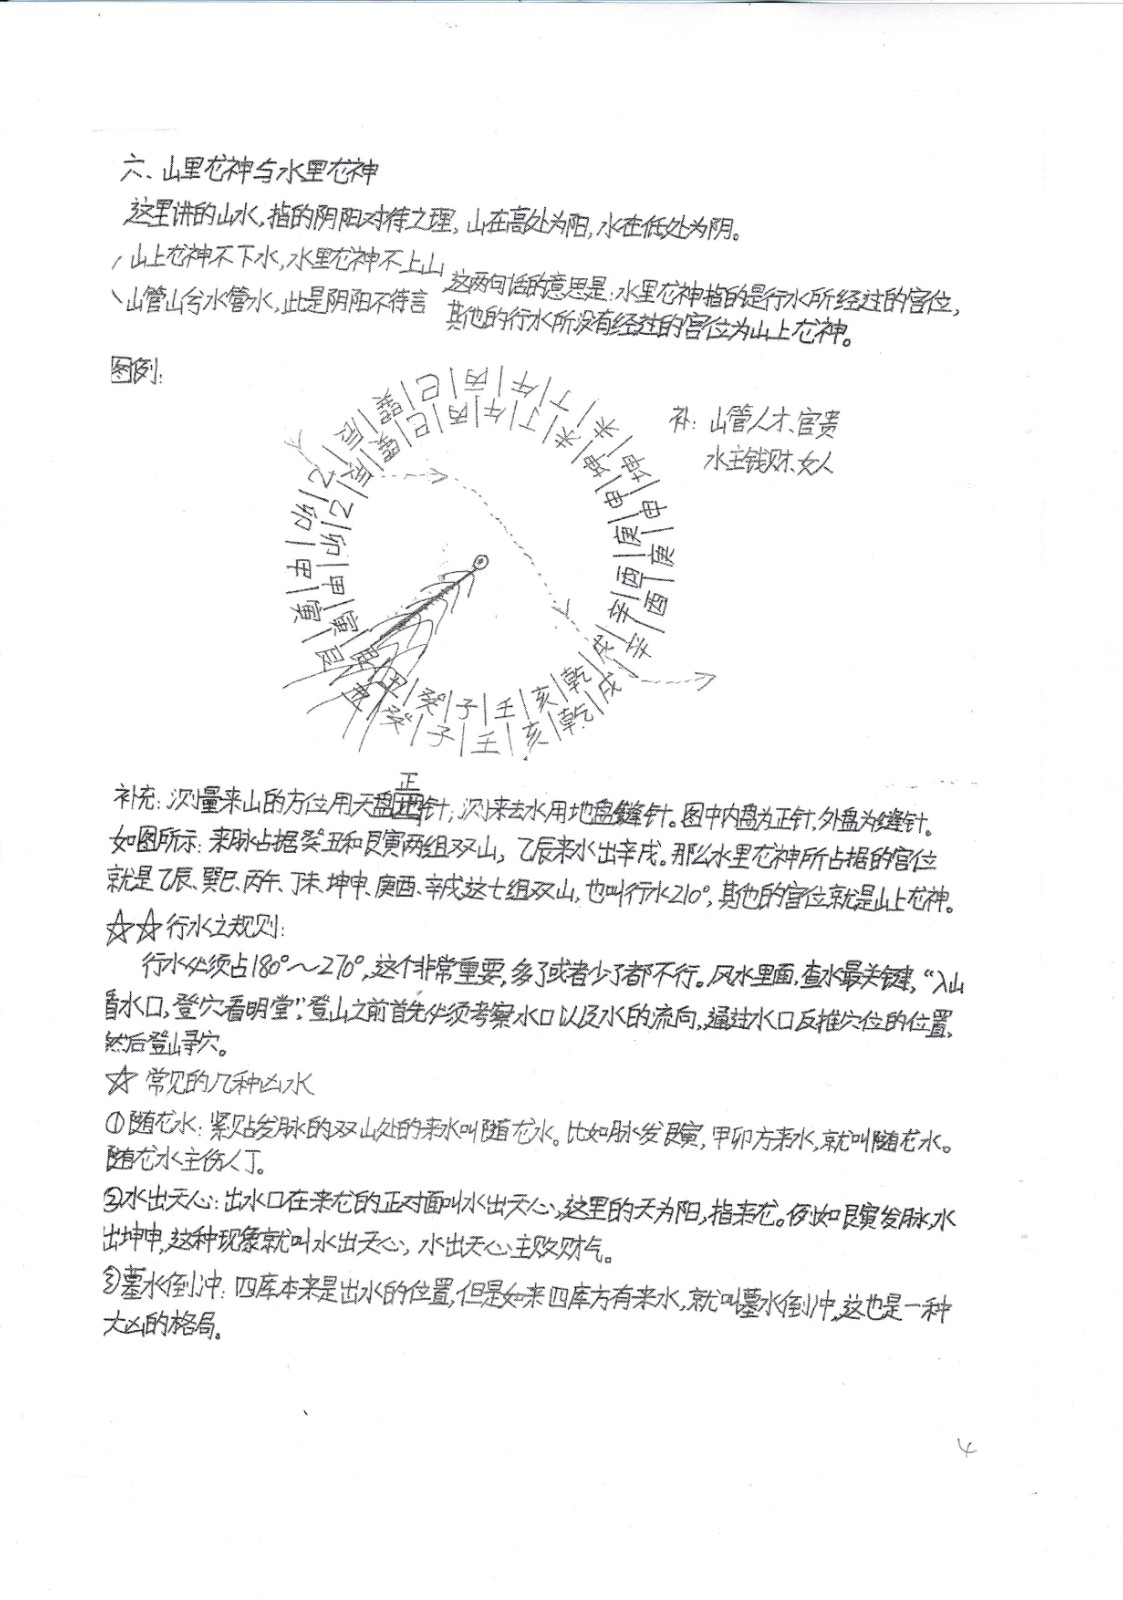 六、山里龙神与水里龙神
这里讲的山水,指的阴阳对待之理,山在高处为阳,水在低处为阴。
山上龙神不下水,水里龙神不上山
山管山兮水管水,此是阴阳不待言
这两句话的意思是:水里龙神指的是行水所经过的宫位,
其他的行水所没有经过的宫位为山上龙神。
图例:
补:山管人才、官贵
水主钱财、女人
巽 巳 丙 午 丁 未 坤 申 庚 酉 辛 戌 乾 亥 壬 子 癸 丑 艮 寅 甲 卯 乙 辰
巽 巳 丙 午 丁 未 坤 申 庚 酉 辛 戌 乾 亥 壬 子 癸 丑 艮 寅 甲 卯 乙 辰
正
补充:测量来山的方位用天盘针;测来去水用地盘缝针。图中内盘为正针,外盘为缝针。
如图所示:来脉占据癸丑和艮寅两组双山,乙辰来水出辛戌。那么水里龙神所占据的宫位
就是乙辰、巽巳、丙午、丁未、坤申、庚酉、辛戌这七组双山,也叫行水210°,其他的宫位就是山上龙神。
☆☆行水之规则:
行水必须占180°~270°,这个非常重要,多了或者少了都不行。风水里面,查水最关键,“入山
看水口,登穴看明堂”,登山之前首先必须考察水口以及水的流向,通过水口反推穴位的位置,
然后登山寻穴。
☆ 常见的几种凶水
①随龙水:紧贴发脉的双山处的来水叫随龙水。比如脉发艮寅,甲卯方来水,就叫随龙水。
随龙水主伤人丁。
②水出天心:出水口在来龙的正对面叫水出天心,这里的天为阳,指来龙。例如艮寅发脉,水
出坤申,这种现象就叫水出天心,水出天心主败财气。
③墓水倒冲:四库本来是出水的位置,但是如来四库方有来水,就叫墓水倒冲,这也是一种
大凶的格局。
4